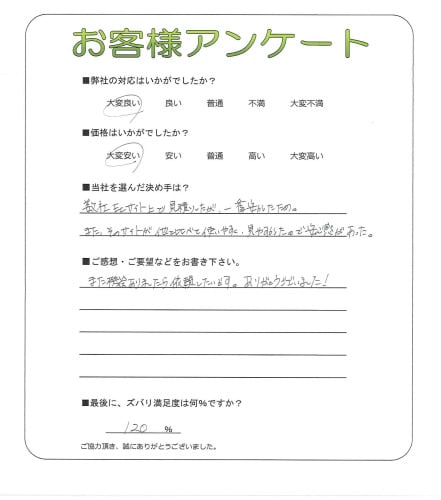 お客様アンケート
■弊社の対応はいかがでしたか？
大変良い 良い 普通 不満 大変不満
■価格はいかがでしたか？
大変安い 安い 普通 高い 大変高い
■当社を選んだ決め手は？
数社 サイト上で見積りしたが、一番安かったため。
また、そのサイトが 使いやすく、見やすかった。 安心感があった。
■ご感想・ご要望などをお書き下さい。
また機会ありましたら依頼したいです。ありがとうございました！
■最後に、ズバリ満足度は何%ですか？
120 %
ご協力頂き、誠にありがとうございました。